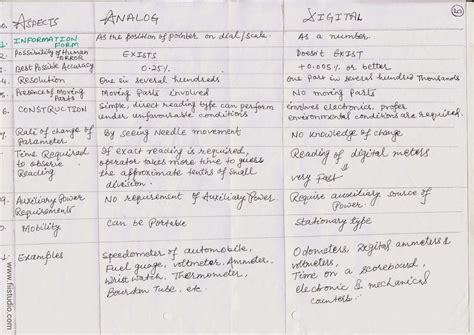 no. ASPECTS ANALOG DIGITAL
1. INFORMATION FORM As the position of pointer on dial/scale. As a number.
2. Possibility of Human ERROR EXISTS Doesn't EXIST
3. Best Possible Accuracy 0.25% +0.005% or better
4. Resolution One in several hundreds one part in several hundred thousands
5. Presence of Moving Parts Moving Parts involved NO moving Parts
6. CONSTRUCTION Simple, direct reading type can perform
under unfavourable conditions
involves electronics, proper
environmental conditions are required.
7. Rate of change of Parameter By seeing Needle movement No knowledge of change
8. Time Required
to observe
Reading
If exact reading is required,
operator takes more time to guess
the approximate tenths of small
division.
Reading of digital meters
is
very Fast
9. Auxiliary Power
Requirements
NO requirement of Auxiliary Power
Require auxiliary source of
Power.
0. Mobility Can be Portable Stationary type
1. Examples
Speedometer of automobile,
Fuel guage, voltmeter, Ammeter,
Wrist Watch, Thermometer,
Bourdon Tube, etc.
Odometers, Digital ammeters &
voltmeters,
Time on a scoreboard,
electronic & mechanical
counters
www.fiistudio.com